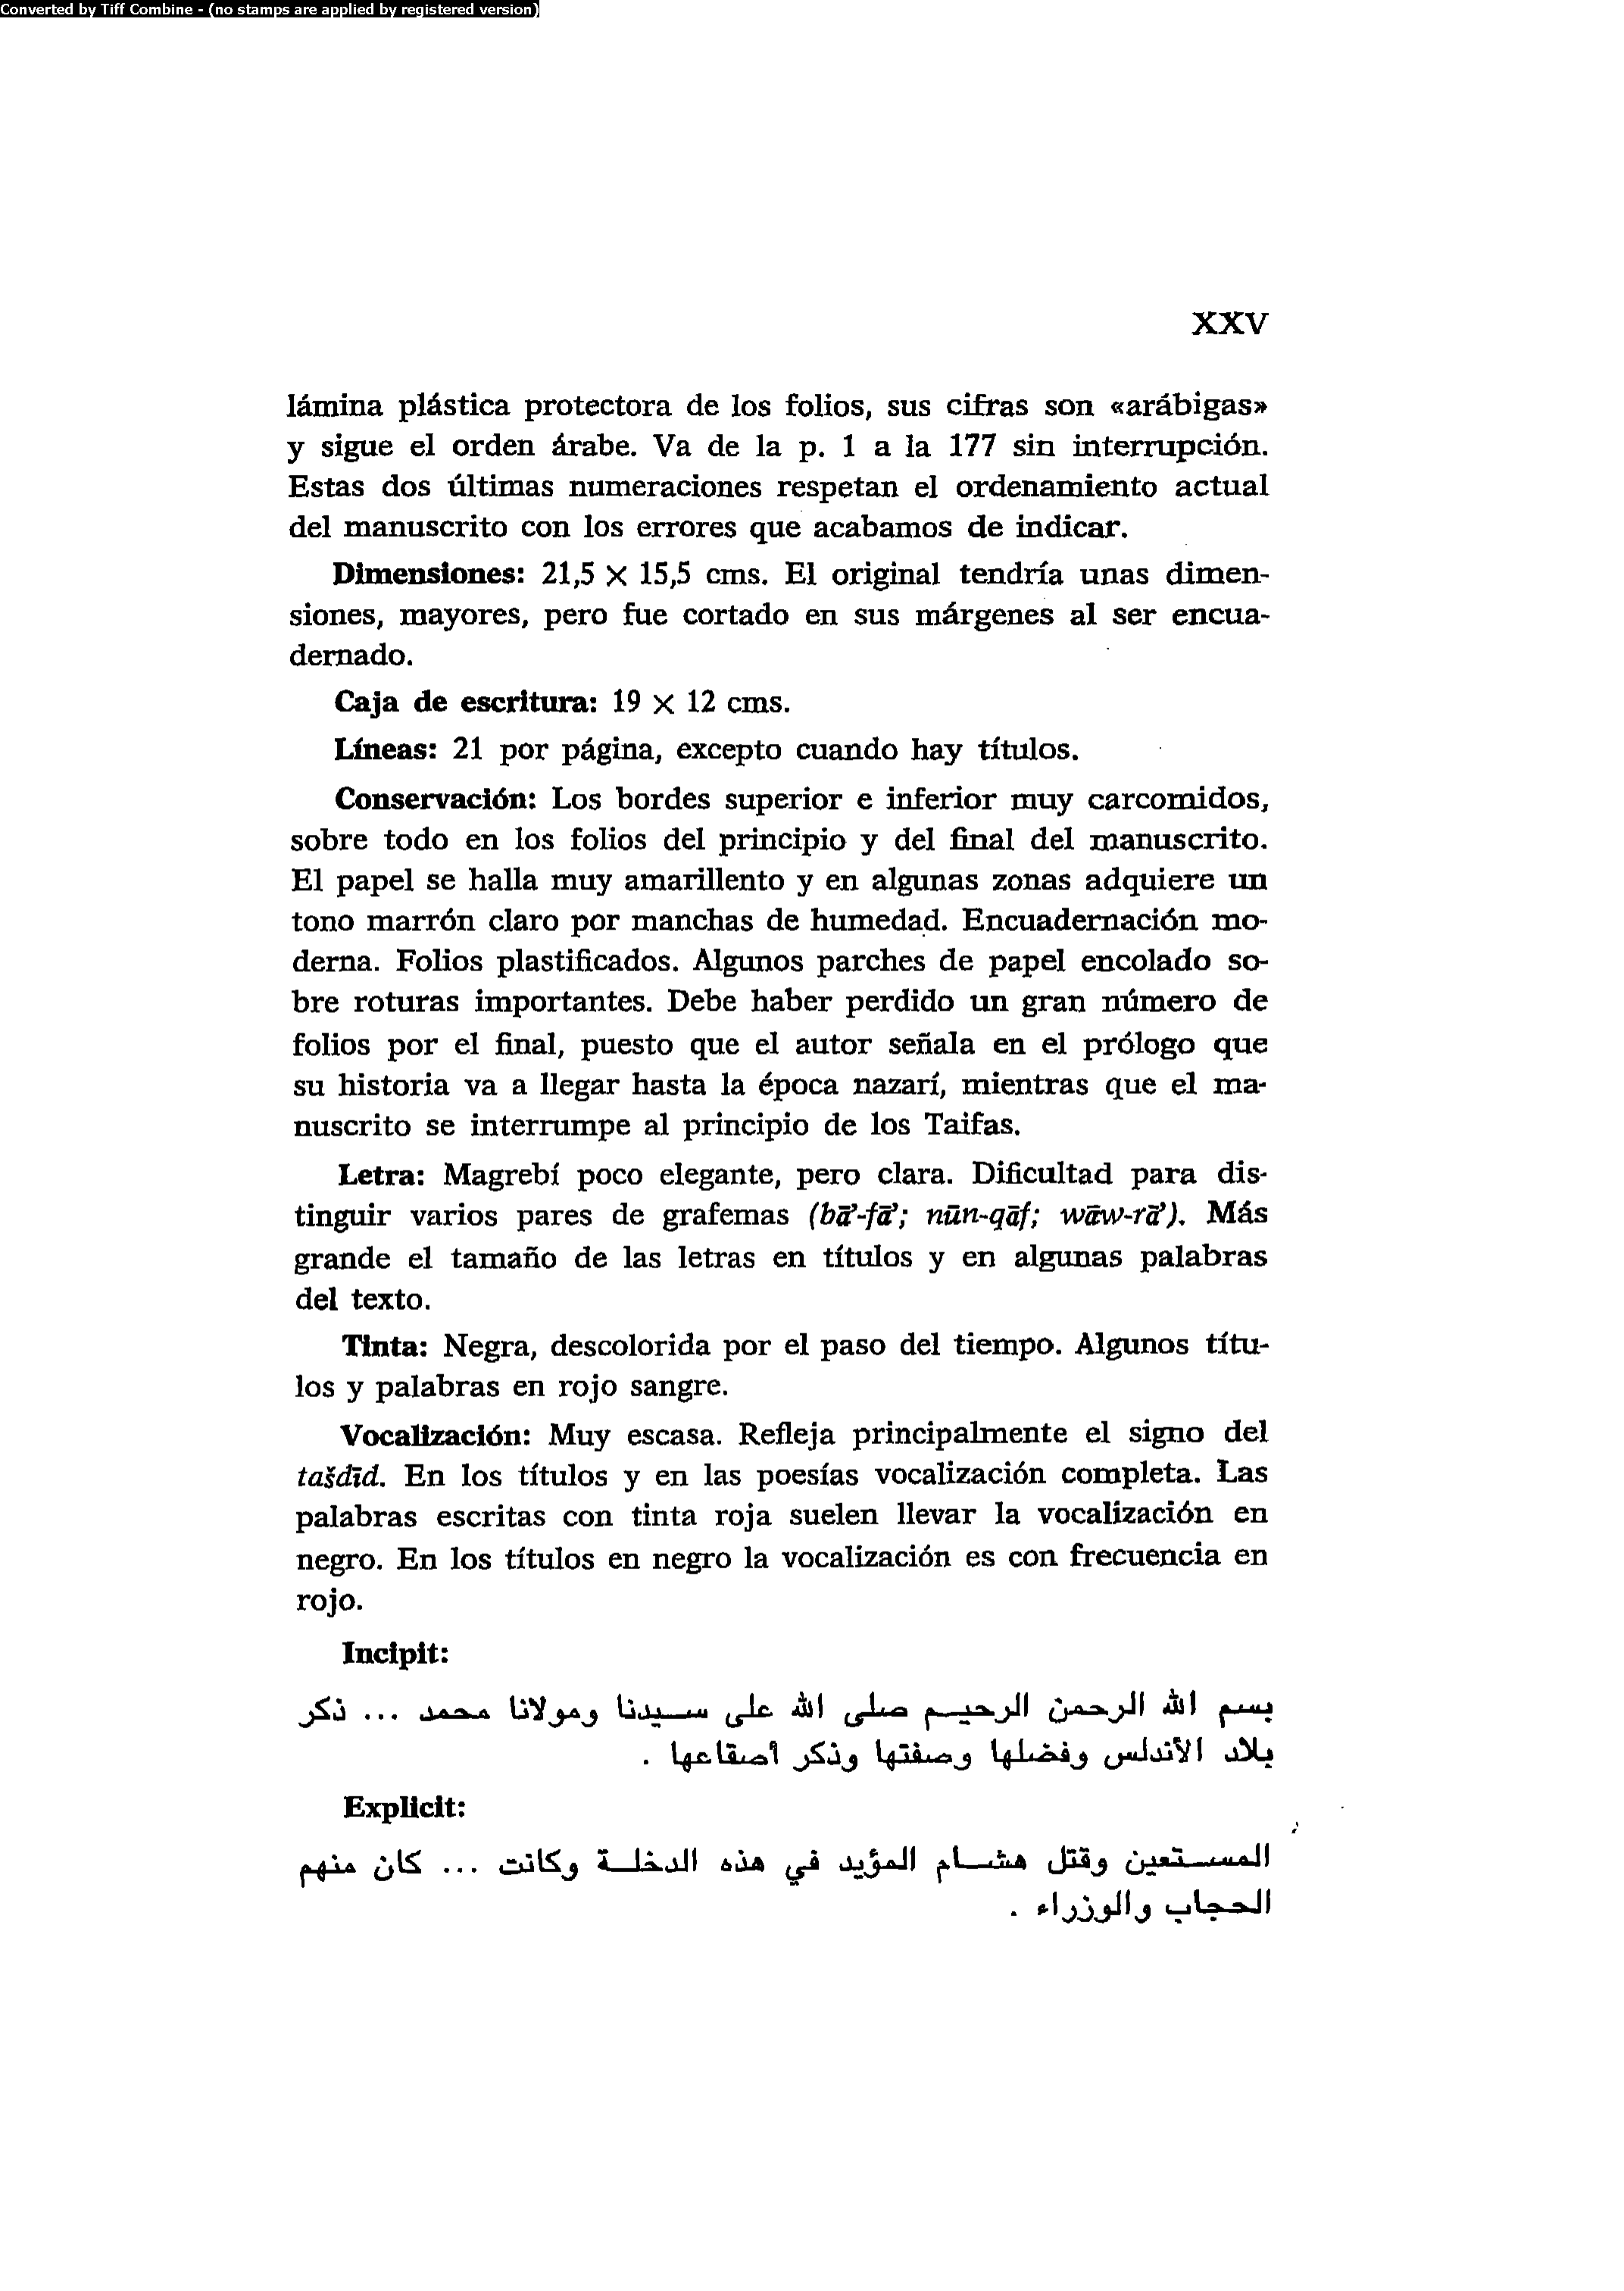 Converted by Tiff Combine - (no stamps are applied by registered version)
XXV
lámina plástica protectora de los folios, sus cifras son «arábigas»
y sigue el orden árabe. Va de la p. 1 a la 177 sin interrupción.
Estas dos últimas numeraciones respetan el ordenamiento actual
del manuscrito con los errores que acabamos de indicar.
Dimensiones: 21,5 × 15,5 cms. El original tendría unas dimen-
siones, mayores, pero fue cortado en sus márgenes al ser encua-
dernado.
Caja de escritura: 19 × 12 cms.
Líneas: 21 por página, excepto cuando hay títulos.
Conservación: Los bordes superior e inferior muy carcomidos,
sobre todo en los folios del principio y del final del manuscrito.
El papel se halla muy amarillento y en algunas zonas adquiere un
tono marrón claro por manchas de humedad. Encuadernación mo-
derna. Folios plastificados. Algunos parches de papel encolado so-
bre roturas importantes. Debe haber perdido un gran número de
folios por el final, puesto que el autor señala en el prólogo que
su historia va a llegar hasta la época nazarí, mientras que el ma-
nuscrito se interrumpe al principio de los Taifas.
Letra: Magrebí poco elegante, pero clara. Dificultad para dis-
tinguir varios pares de grafemas (bā’-fā’; nūn-qāf; wāw-rā’). Más
grande el tamaño de las letras en títulos y en algunas palabras
del texto.
Tinta: Negra, descolorida por el paso del tiempo. Algunos títu-
los y palabras en rojo sangre.
Vocalización: Muy escasa. Refleja principalmente el signo del
tašdīd. En los títulos y en las poesías vocalización completa. Las
palabras escritas con tinta roja suelen llevar la vocalización en
negro. En los títulos en negro la vocalización es con frecuencia en
rojo.
Incipit:
بسم الله الرحمن الرحيم صلى الله على سيدنا ومولانا محمد ... ذكر
بلاد الاندلس وفضلها وصفتها وذكر أصقاعها .
Explicit:
المستعين وقتل هشام المؤيد في هذه الدخلة وكانت ... كان منهم
الحجاب والوزراء .